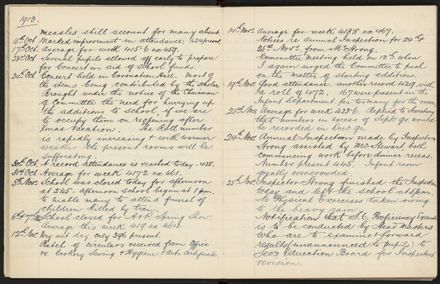 1913.
Measles still account for many absent.
9th Oct. Marked improvement in attendance. 424 present
17th Oct. Average for week 415.6 ex 459.
23rd Oct. Several pupils allowed off early to prepare
for Concert in aid of School funds.
24th Oct. Concert held in Coronation Hall. Most of
the items being contributed by the scholars.
Brought under the notice of the Chairman
of Committee the need for hurrying up
the additions to school, if we are
to occupy them on reopening after
Xmas Vacation. The Roll number
is rapidly increasing & with warmer
weather the present rooms will be
suffocating.
30th Oct. A record Attendance is reached today - 428.
31st Oct. Average for week 417.2 ex 461.
5th Nov. School was closed today for afternoon
at 2.45. Afternoon School began at 1 p.m.
to enable many to attend funeral of
children killed by train.
6th & 7th Nov. School closed for A & P. Spring Show.
Average this week 419 ex 460
12th Nov. Very wet day only 396 present.
Batch of circulars received from Office
re Cookery Sewing & Hygiene & Arts Certificate
14th Nov. Average for week 413.8 ex 467.
Notice re Annual Inspection for 24th &
25th Nov. from Mr Strong.
Committee Meeting held on 13th when
I again urged the Committee to push
on the matter of starting additions.
19th Nov. Good attendance. Another record 429, with
a roll of 472. 167 were present in the
Infant Department, far too many for the room
21st Nov. Average for week 423.6. Asked to develop
that numbers in excess of Sept. qr. could
be recorded in Dec. qr.
24th Nov. Annual Inspection made by Inspector
Strong assisted by Mr Stewart, both
commencing work before dinner recess.
Number present 445. Infant room
greatly overcrowded.
25th Nov. Inspector Strong finished the Inspection
today and left the school at 3.30.
No Physical Exercises taken owing
to the heavy rain.
Notification that S.C. Proficiency Exam
is to be conducted by Head Masters
who are to summit forward
results (unannounced to pupils) to
Sec. Education Board for Inspectors
revision.